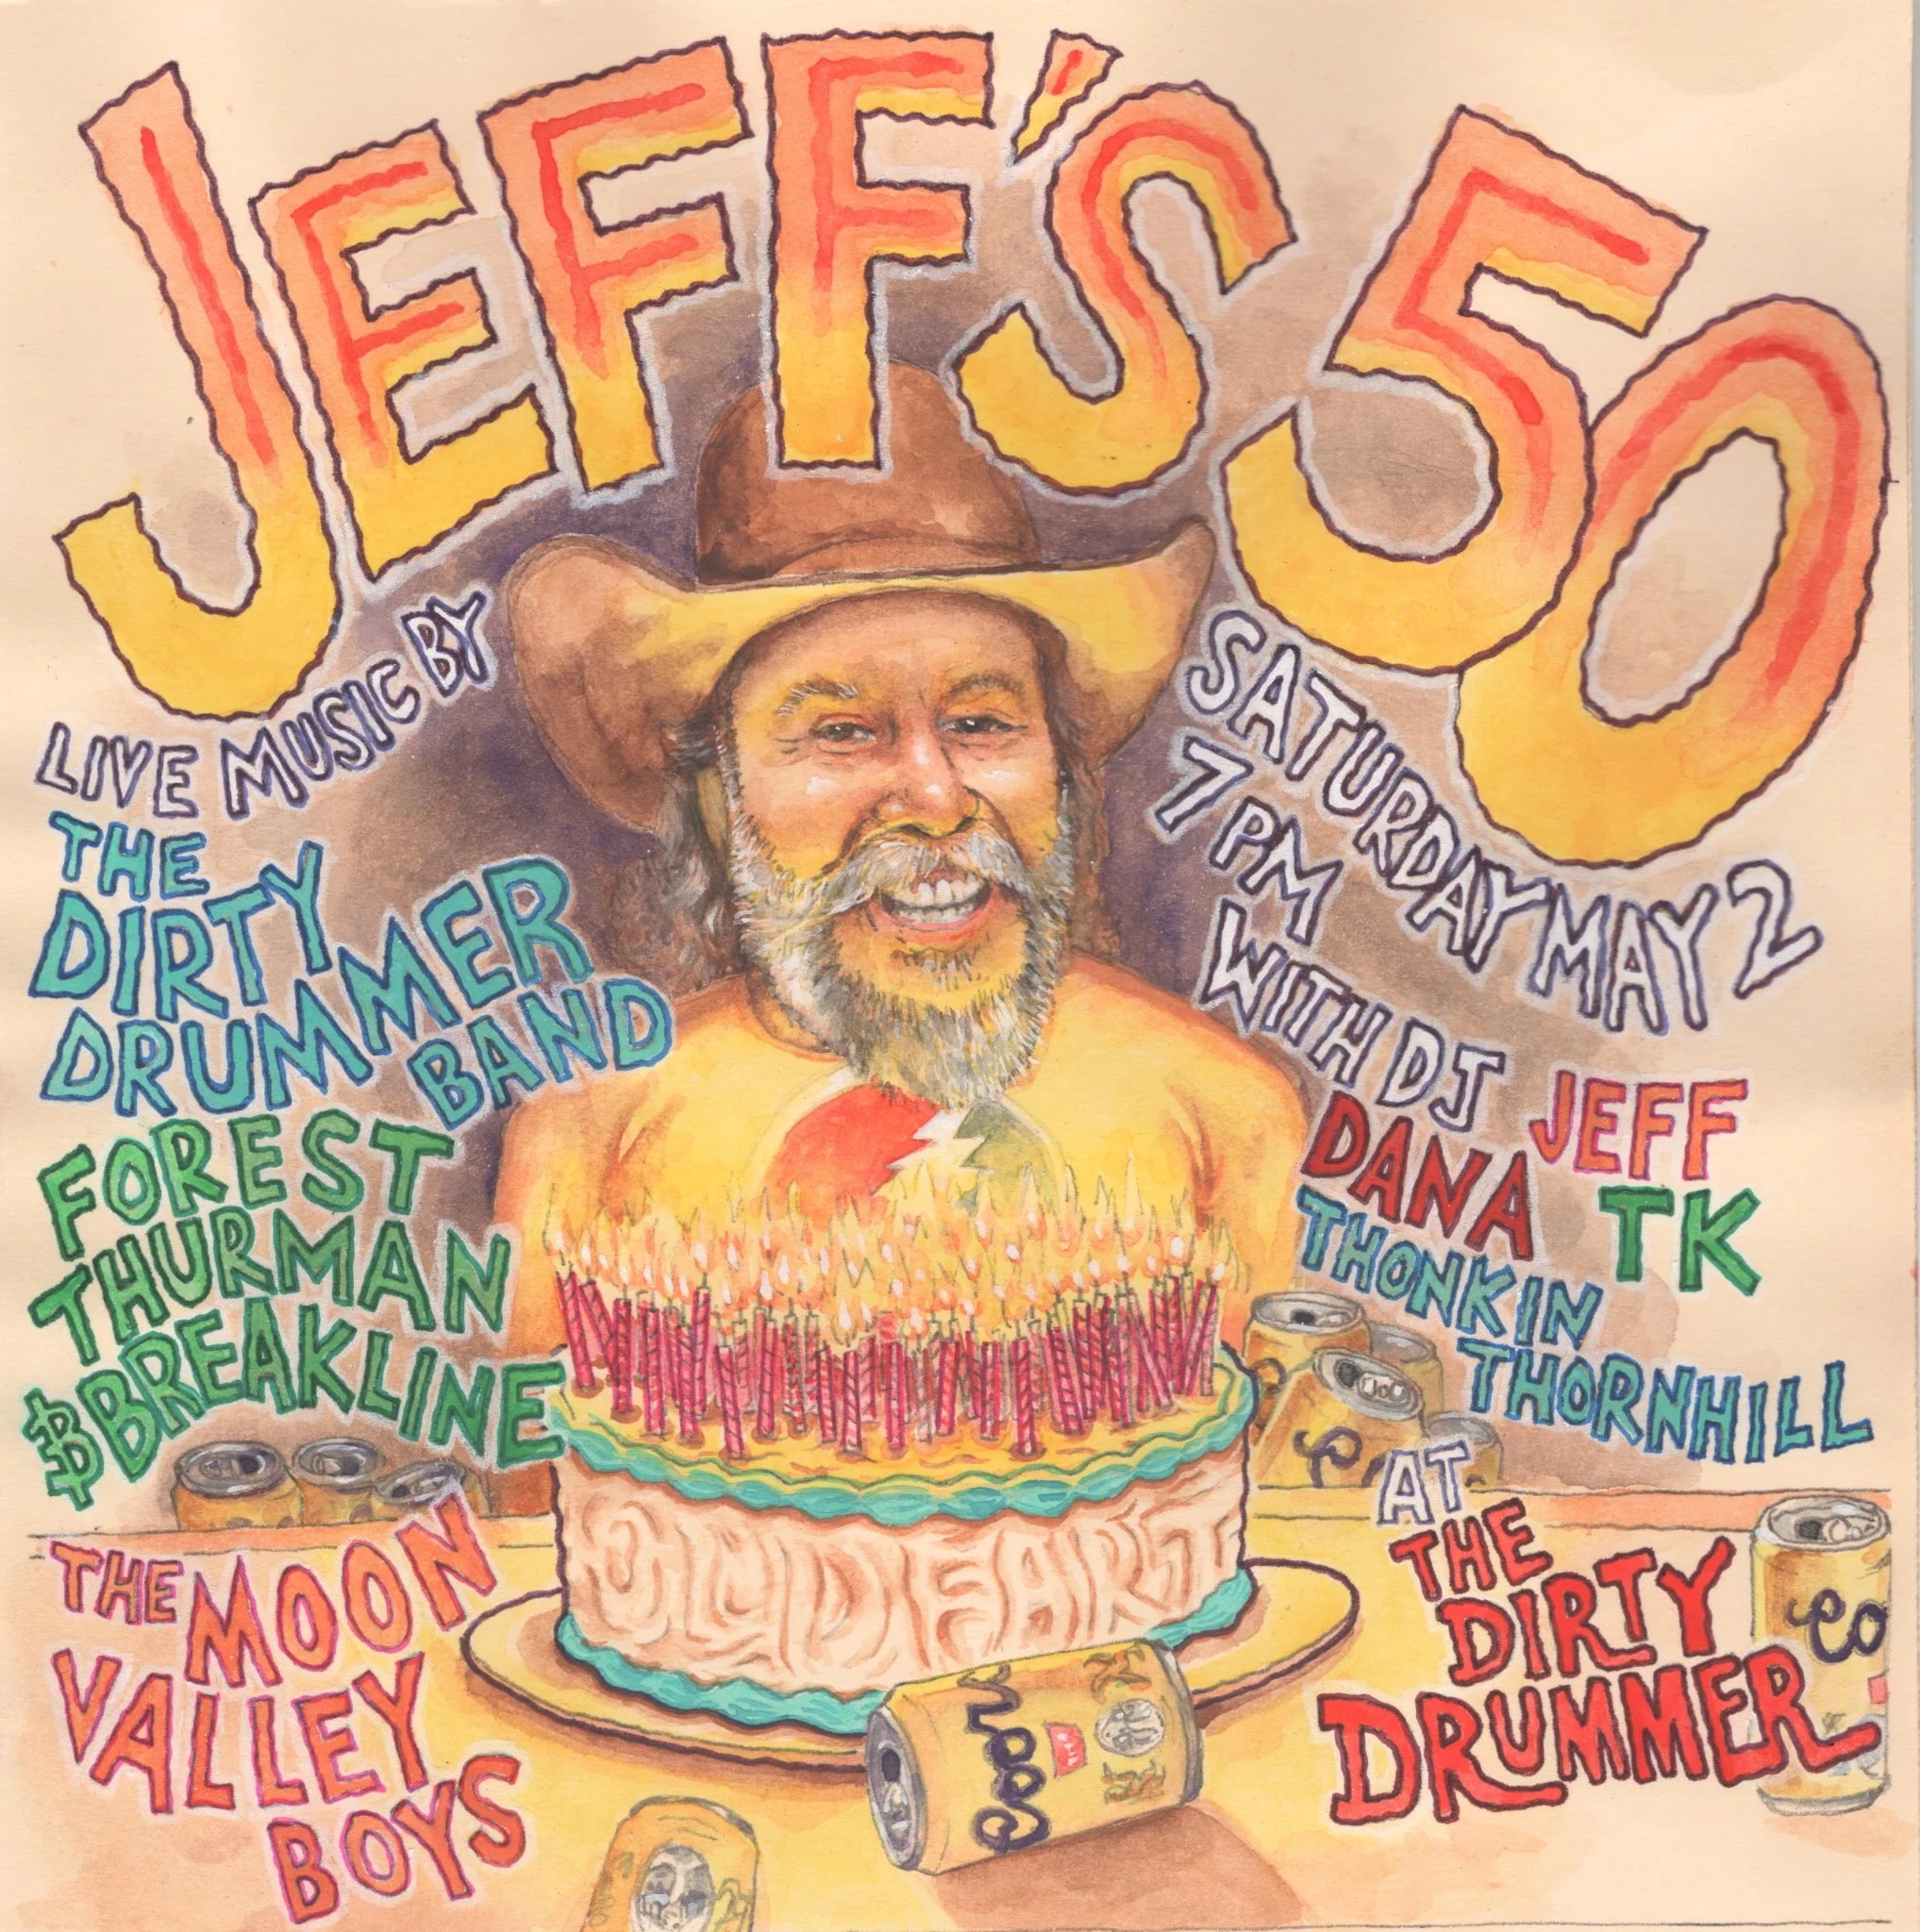 JEFF'S 50
LIVE MUSIC BY
THE
DIRTY
DRUMMER
BAND
FOREST
THURMAN
$ BREAKLINE
THE MOON
VALLEY
BOYS
SATURDAY MAY 2
7 PM
WITH DJ
JEFF
DANA
TK
THONKIN
THORNHILL
AT
THE
DIRTY
DRUMMER
OLD FART
Coo